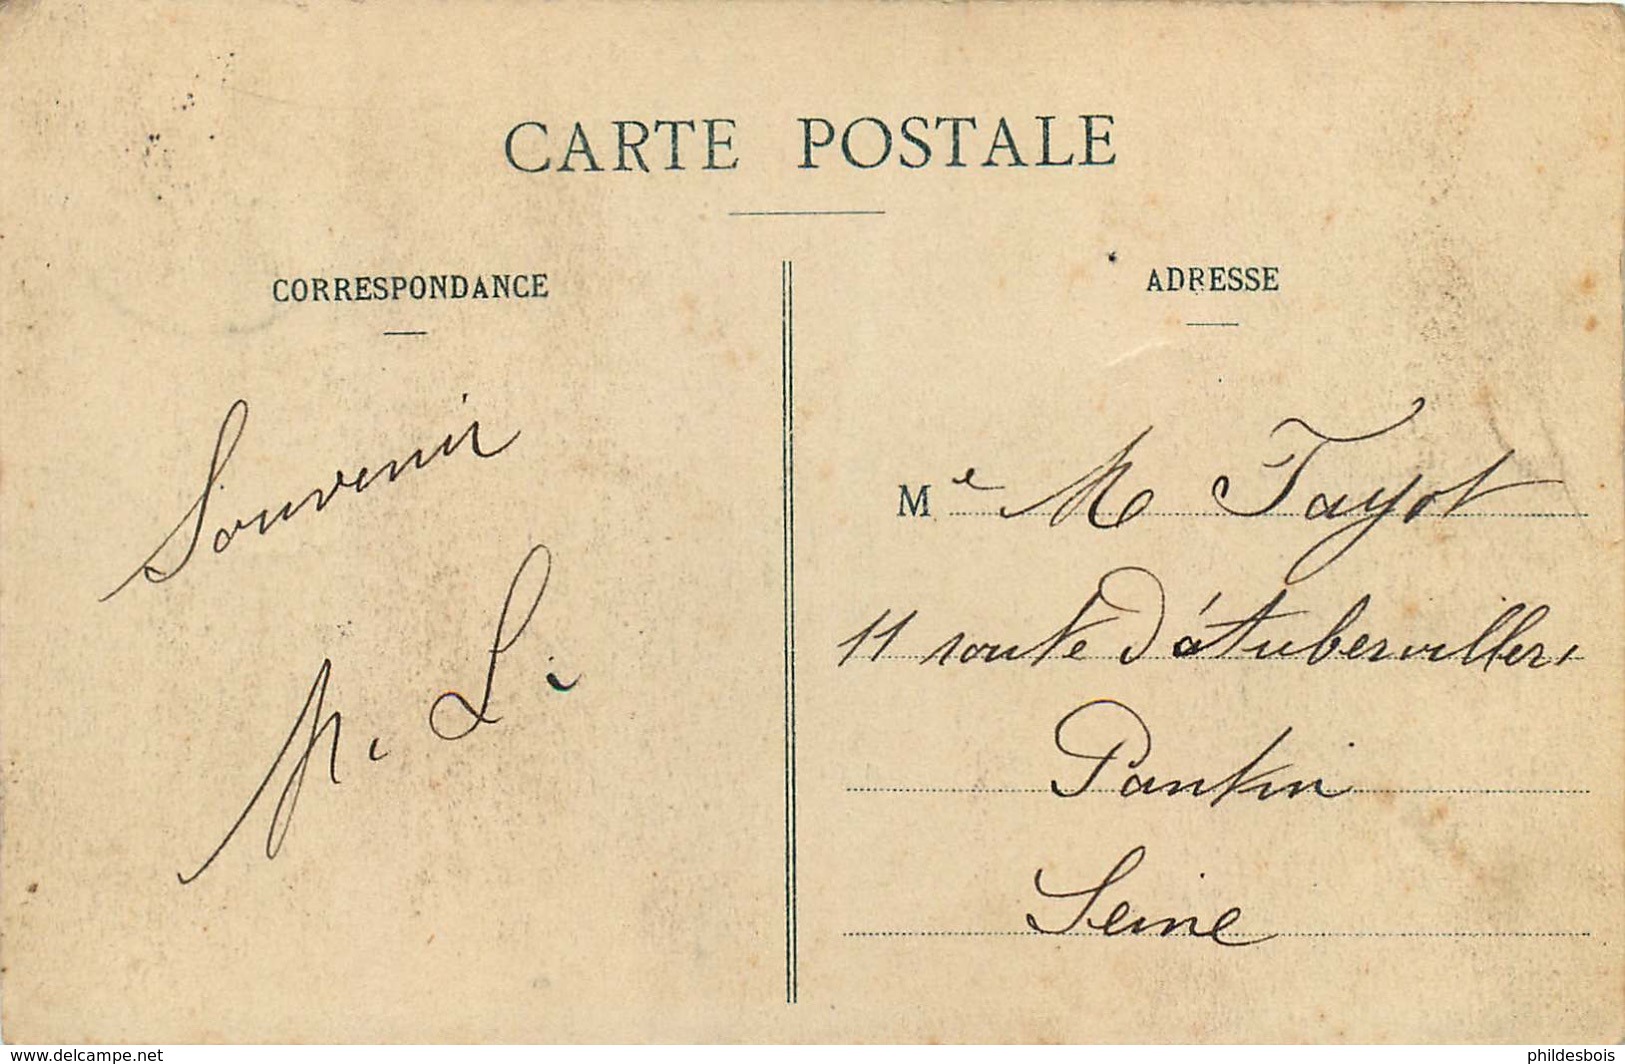 CARTE POSTALE
CORRESPONDANCE
Souvenir
M. L.
ADRESSE
Me M Tayot
11 route d'Aubervilliers
Pantin
Seine
www.delcampe.net
phildesbois